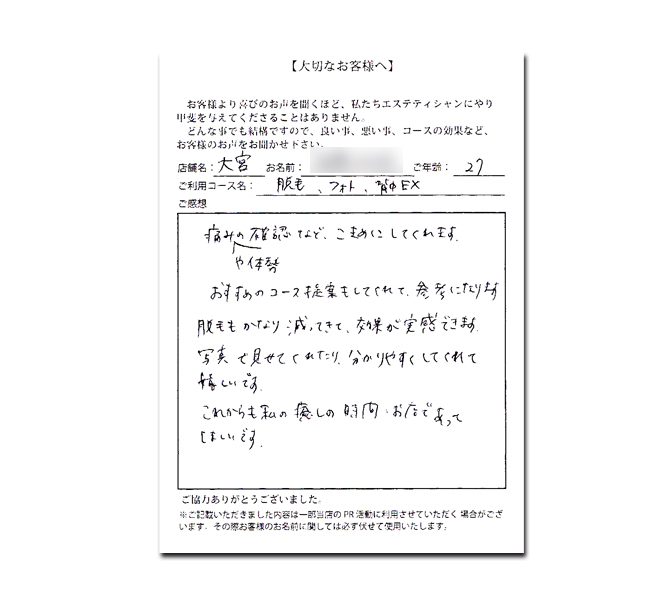 【大切なお客様へ】
お客様より喜びのお声を聞くほど、私たちエステティシャンにやり
甲斐を与えてくださることはありません。
どんな事でも結構ですので、良い事、悪い事、コースの効果など、
お客様のお声をお聞かせ下さい。
店舗名：大宮 お名前： ご年齢：27
ご利用コース名：脱毛、フォト、背中EX
ご感想
痛みの確認など、こまめにしてくれます。
や体勢
おすすめのコース提案もしてくれて、参考になります
脱毛もかなり減ってきて、効果が実感できます。
写真で見せてくれたり、分かりやすくしてくれて
嬉しいです。
これからも私の癒しの時間・お店であって
ほしいです。
ご協力ありがとうございました。
※ご記載いただきました内容は一部当店のPR活動に利用させていただく場合がござ
います。その際お客様のお名前に関しては必ず伏せて使用いたします。